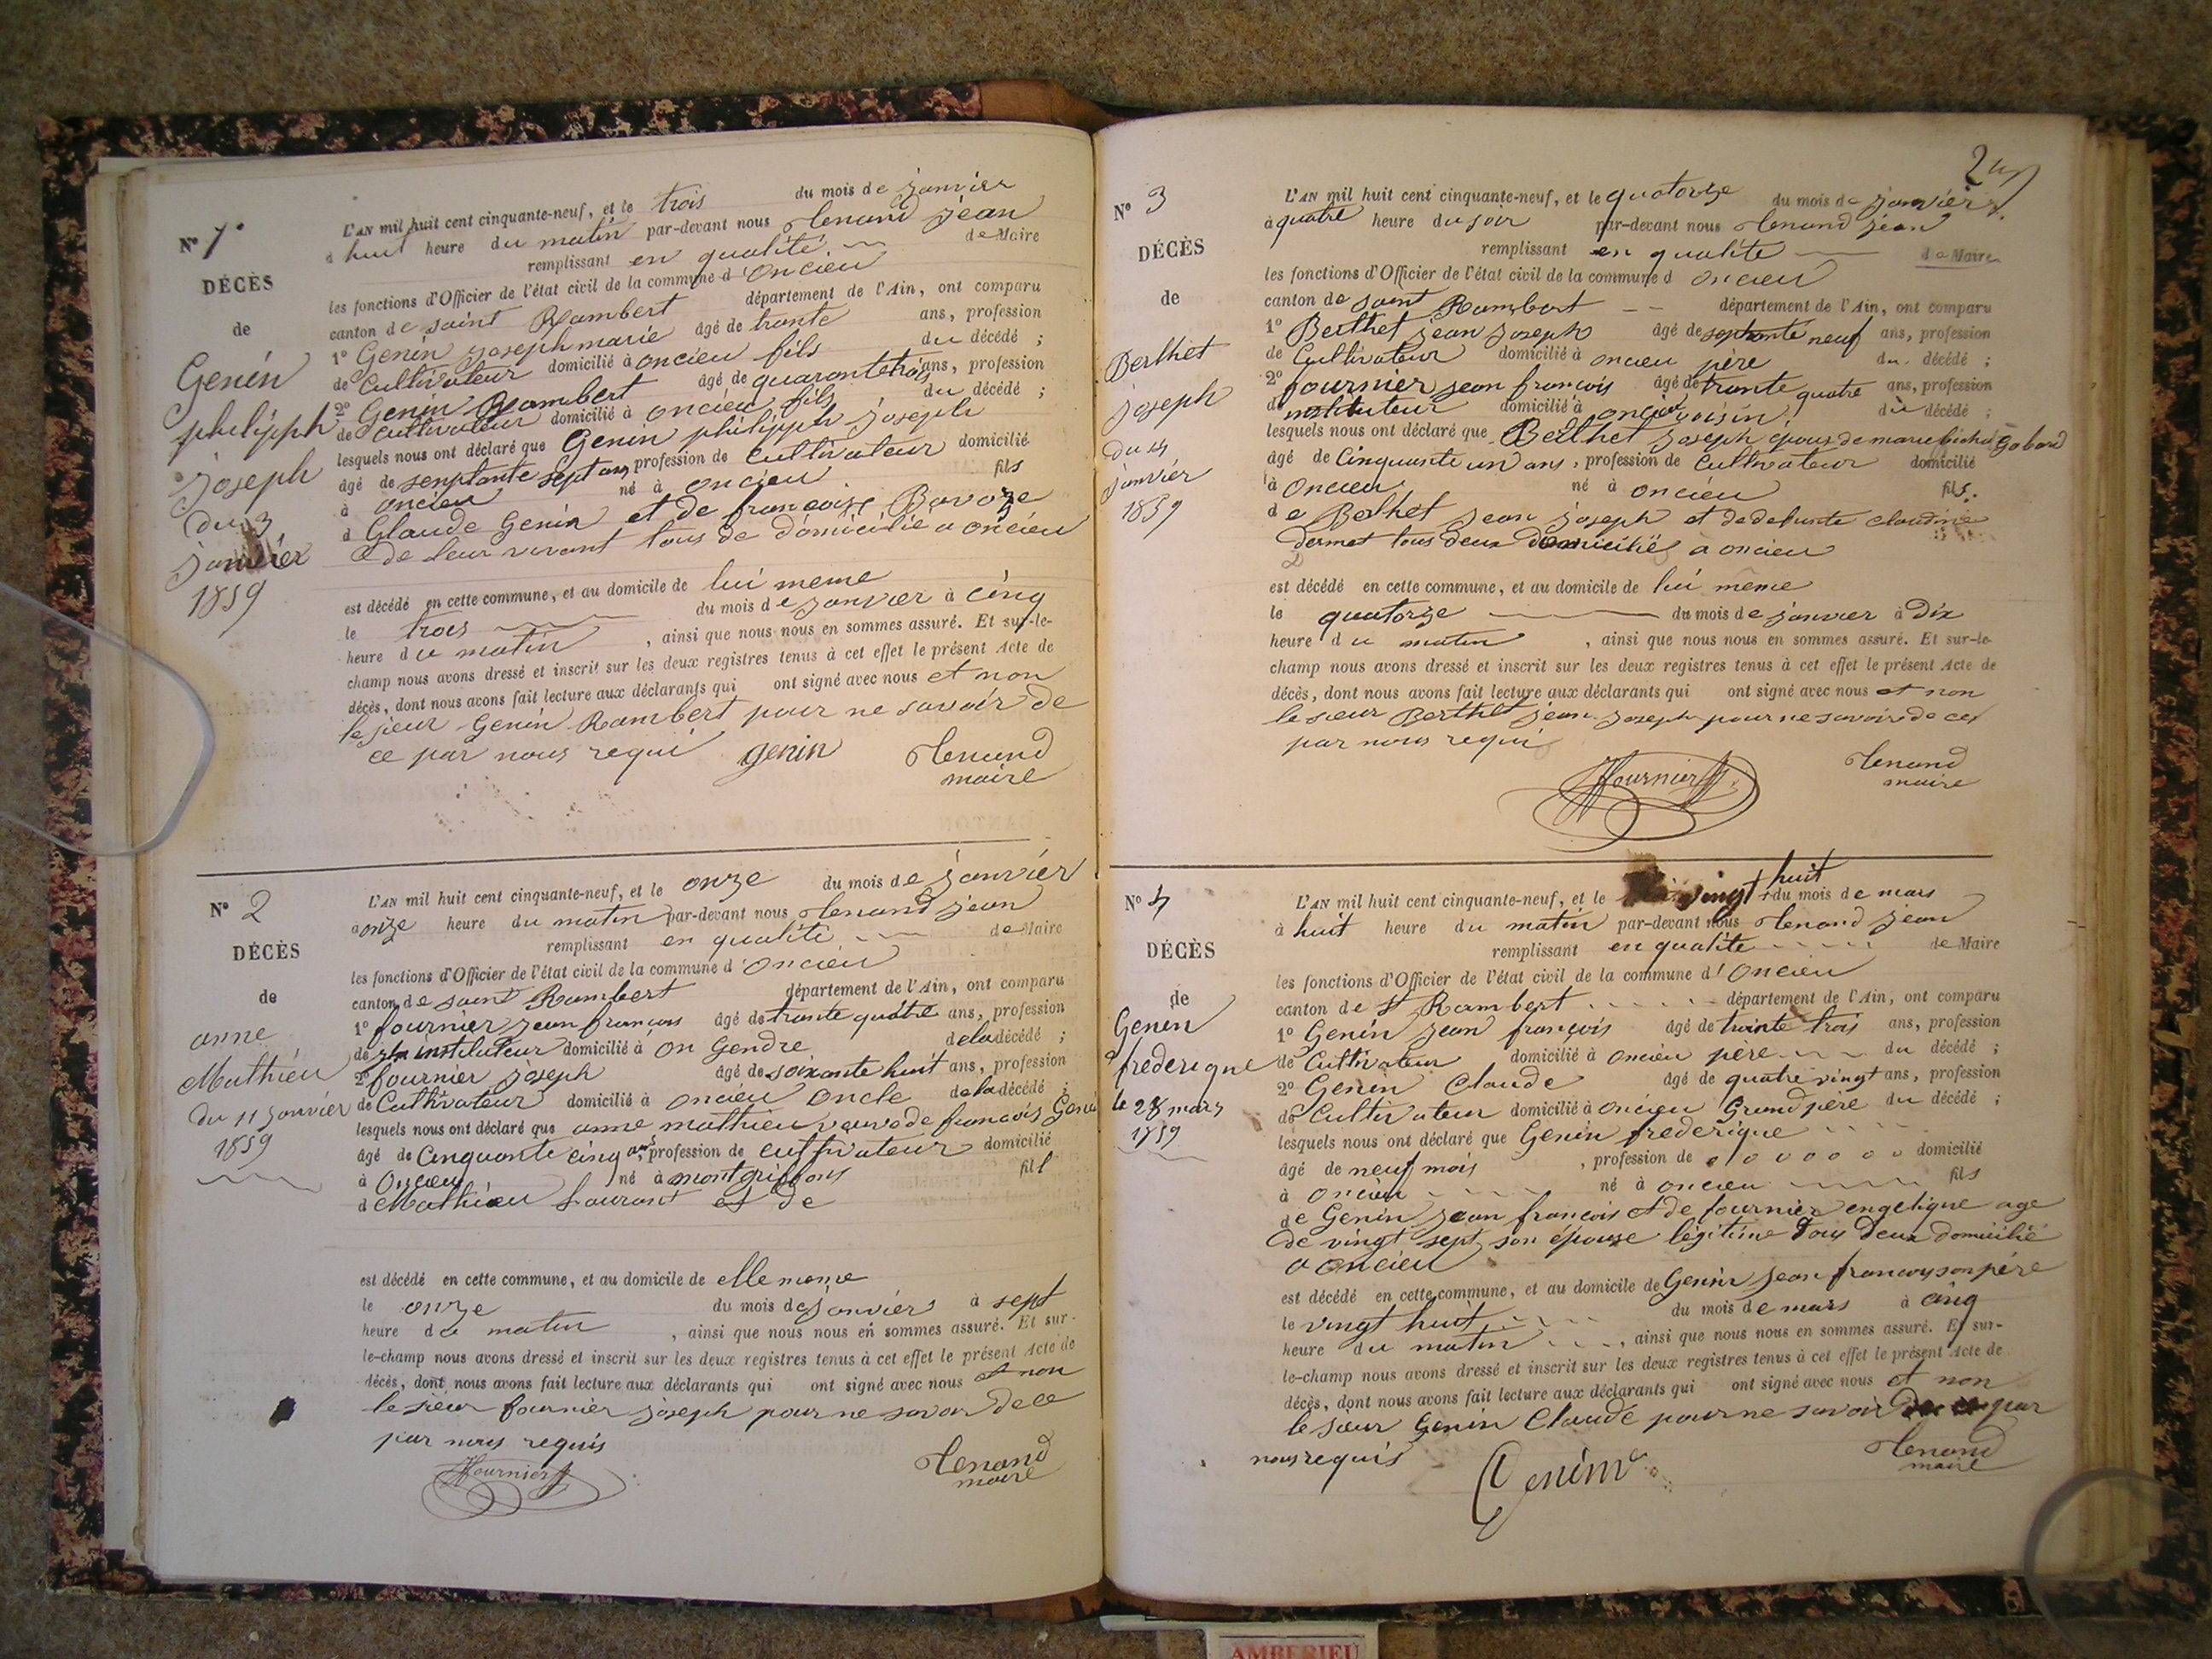 N° 1°
DÉCÈS
de
Genin
philipph
joseph
du 3
janvier
1859
L'AN mil huit cent cinquante-neuf, et le trois du mois de janvier
à huit heure du matin par-devant nous Tenand jean
remplissant en qualité de Maire
les fonctions d'Officier de l'état civil de la commune d'oncieu
canton de saint Rambert département de l'Ain, ont comparu
1° Genin joseph marie âgé de trante ans, profession
de Cultivateur domicilié à oncieu fils du décédé ;
2° Genin Rambert âgé de quarante trois ans, profession
de cultivateur domicilié à oncieu fils du décédé ;
lesquels nous ont déclaré que Genin philipph joseph
âgé de senptante sept ans profession de Cultivateur domicilié
à oncieu né à oncieu fils
d Glaude Genin et de francoise Bavoze
de leur vivant tous de domicilie a oncieu
est décédé en cette commune, et au domicile de lui meme
le trois du mois de janvier à cinq
heure du matin , ainsi que nous nous en sommes assuré. Et sur-le-
champ nous avons dressé et inscrit sur les deux registres tenus à cet effet le présent Acte de
décès, dont nous avons fait lecture aux déclarants qui ont signé avec nous et non
le sieur Genin Rambert pour ne savoir de
ce par nous requi genin Tenand
maire
N° 2
DÉCÈS
de
anne
Mathieu
du 11 janvier
1859
L'AN mil huit cent cinquante-neuf, et le onze du mois de janvier
à onze heure du matin par-devant nous Tenand jean
remplissant en qualité de Maire
les fonctions d'Officier de l'état civil de la commune d'oncieu
canton de saint Rambert département de l'Ain, ont comparu
1° fournier jean francois âgé de trante quatre ans, profession
de instituteur domicilié à on Gendre de la décédé ;
2° fournier joseph âgé de soixante huit ans, profession
de Cultivateur domicilié à oncieu oncle de la décédé ;
lesquels nous ont déclaré que anne mathieu veuve de francois Genin
âgé de Cinquante cinq ans, profession de cultivateur domicilié
à Oncieu né à montgriffons fill
d Mathieu Laurant et de
est décédé en cette commune, et au domicile de elle meme
le onze du mois de janvier à sept
heure du matin , ainsi que nous nous en sommes assuré. Et sur-
le-champ nous avons dressé et inscrit sur les deux registres tenus à cet effet le présent Acte de
décès, dont nous avons fait lecture aux déclarants qui ont signé avec nous et non
le sieur fournier joseph pour ne savoir de ce
par nous requis
Fournier Tenand
maire
N° 3
DÉCÈS
de
Berthet
joseph
du 14
janvier
1859
L'AN mil huit cent cinquante-neuf, et le quatorze du mois de janvier
à quatre heure du soir par-devant nous Tenand jean
remplissant en qualite de Maire
les fonctions d'Officier de l'état civil de la commune d oncieu
canton de saint Rambert département de l'Ain, ont comparu
1° Berthet jean joseph âgé de septante neuf ans, profession
de Cultivateur domicilié à oncieu père du décédé ;
2° fournier jean francois âgé de trante quatre ans, profession
de instituteur domicilié à oncieu voisin du décédé ;
lesquels nous ont déclaré que Bèrthet joseph époux de marie
âgé de Cinquante un ans, profession de Cultivateur domicilié
à Oncieu né à oncieu fils.
de Berthet jean joseph et de defunte claudine
Dermet tous deux Domiciliés a oncieu
est décédé en cette commune, et au domicile de lui même
le quatorze du mois de janvier à Dix
heure du matin , ainsi que nous nous en sommes assuré. Et sur-le-
champ nous avons dressé et inscrit sur les deux registres tenus à cet effet le présent Acte de
décès, dont nous avons fait lecture aux déclarants qui ont signé avec nous et non
le sieur Berthet jean joseph pour ne savoir de ce
par nous requi
Fournier Tenand
maire
N° 4
DÉCÈS
de
Genin
frederique
le 28 mars
1859
L'AN mil huit cent cinquante-neuf, et le vingt huit du mois de mars
à huit heure du matin par-devant nous Tenand jean
remplissant en qualite de Maire
les fonctions d'Officier de l'état civil de la commune d'Oncieu
canton de St Rambert département de l'Ain, ont comparu
1° Genin jean françois âgé de trainte trois ans, profession
de Cultivateur domicilié à oncieu père du décédé ;
2° Genin Claude âgé de quatre vingt ans, profession
de Cultivateur domicilié à oncieu Grand père du décédé ;
lesquels nous ont déclaré que Genin frederique
âgé de neuf mois , profession de domicilié
à oncieu né à oncieu fils
de Genin jean francois et de fournier engelique age
de vingt sept son épouse légitime Tous Deux domicilié
a oncieu
est décédé en cette commune, et au domicile de Genin jean francoy son père
le vingt huit du mois de mars à cinq
heure du matin , ainsi que nous nous en sommes assuré. Et sur-
le-champ nous avons dressé et inscrit sur les deux registres tenus à cet effet le présent Acte de
décès, dont nous avons fait lecture aux déclarants qui ont signé avec nous et non
le sieur Genin Claude pour ne savoir de ce par
nous requis Genin Tenand
maire
AMBERIEU